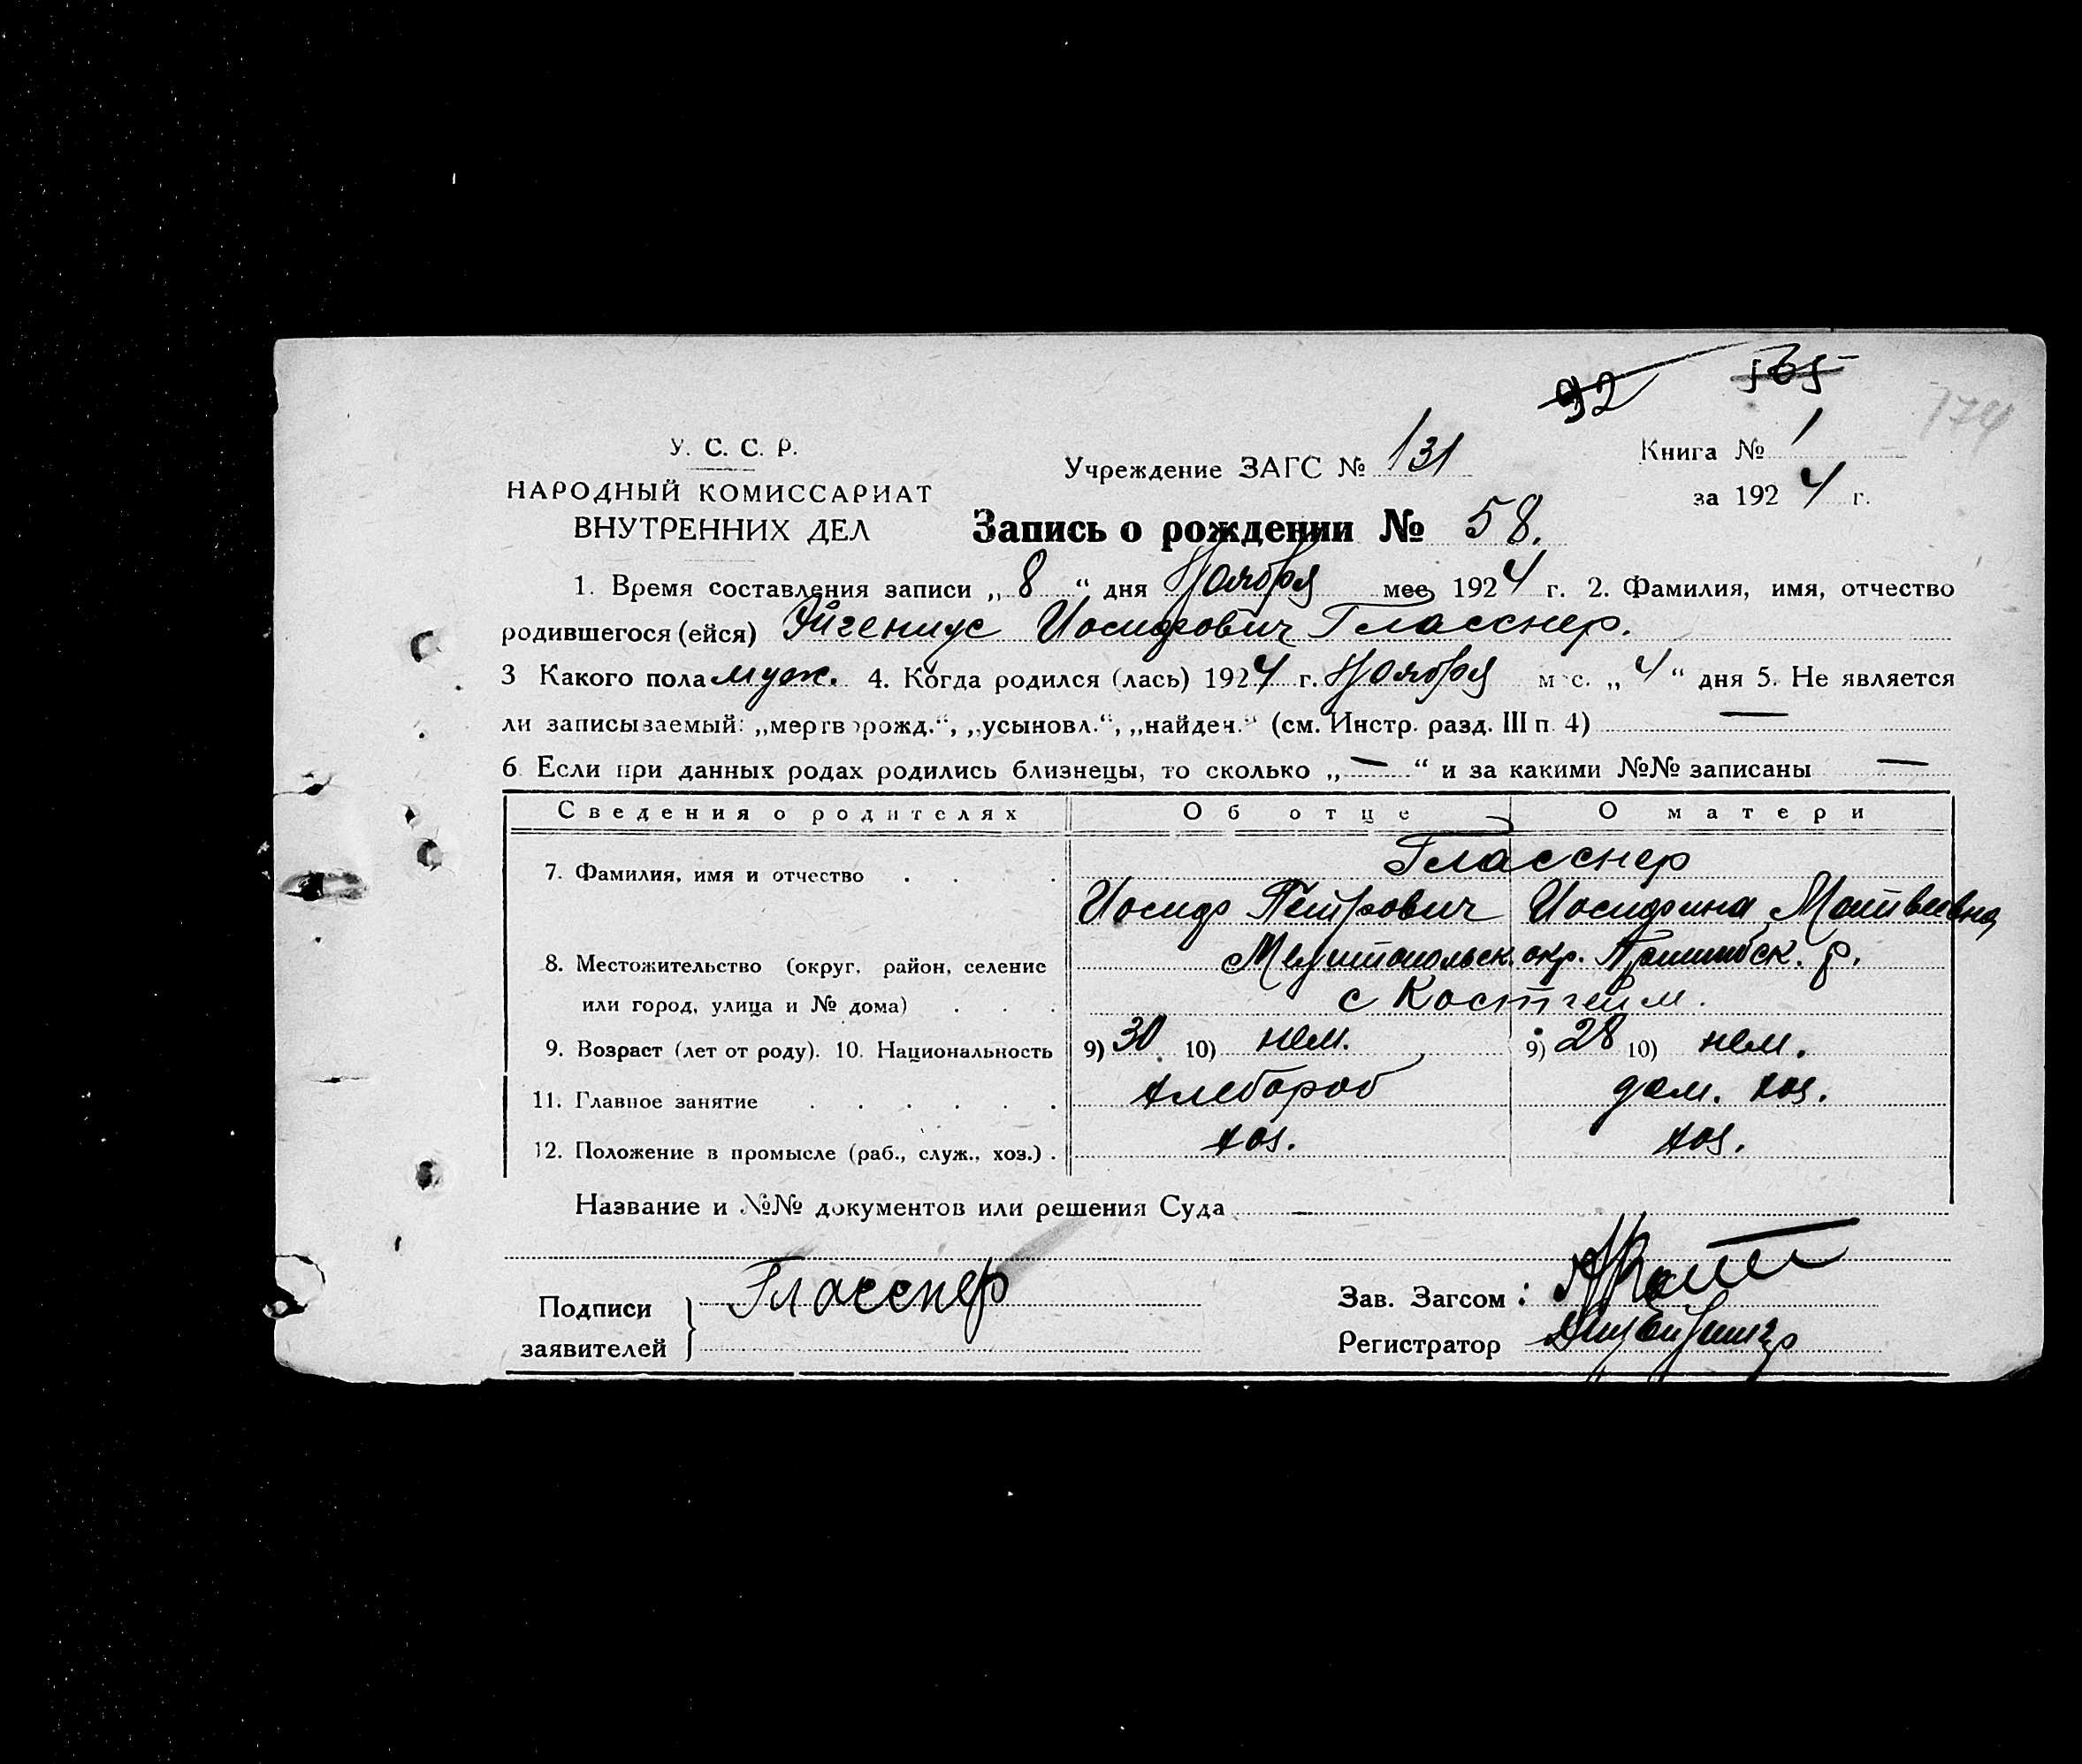 92 565
174
У. С. С. Р.
НАРОДНЫЙ КОМИССАРИАТ
ВНУТРЕННИХ ДЕЛ
Учреждение ЗАГС № 131
Книга № 1
за 1924 г.
Запись о рождении № 58.
1. Время составления записи „8“ дня Ноября мес 1924 г. 2. Фамилия, имя, отчество
родившегося (ейся) Эйгениус Иосифович Гласснер.
3 Какого пола муж. 4. Когда родился (лась) 1924 г. Ноября мес. „4“ дня 5. Не является
ли записываемый: „мертворожд.“, „усыновл.“, „найден.“ (см. Инстр. разд. III п. 4) —
6. Если при данных родах родились близнецы, то сколько „—“ и за какими №№ записаны —
Сведения о родителях Об отце О матери
7. Фамилия, имя и отчество . . . Гласснер
Иосиф Петрович Иосифина Матвеевна
8. Местожительство (округ, район, селение Мелитопольск. окр. Пришибск. р.
или город, улица и № дома) . . . с Костгейм.
9. Возраст (лет от роду). 10. Национальность 9) 30 10) нем. 9) 28 10) нем.
11. Главное занятие . . . . . . хлебороб дом. хоз.
12. Положение в промысле (раб., служ., хоз.) . хоз. хоз.
Название и №№ документов или решения Суда —
Подписи
заявителей } Гласснер
Зав. Загсом :
Регистратор